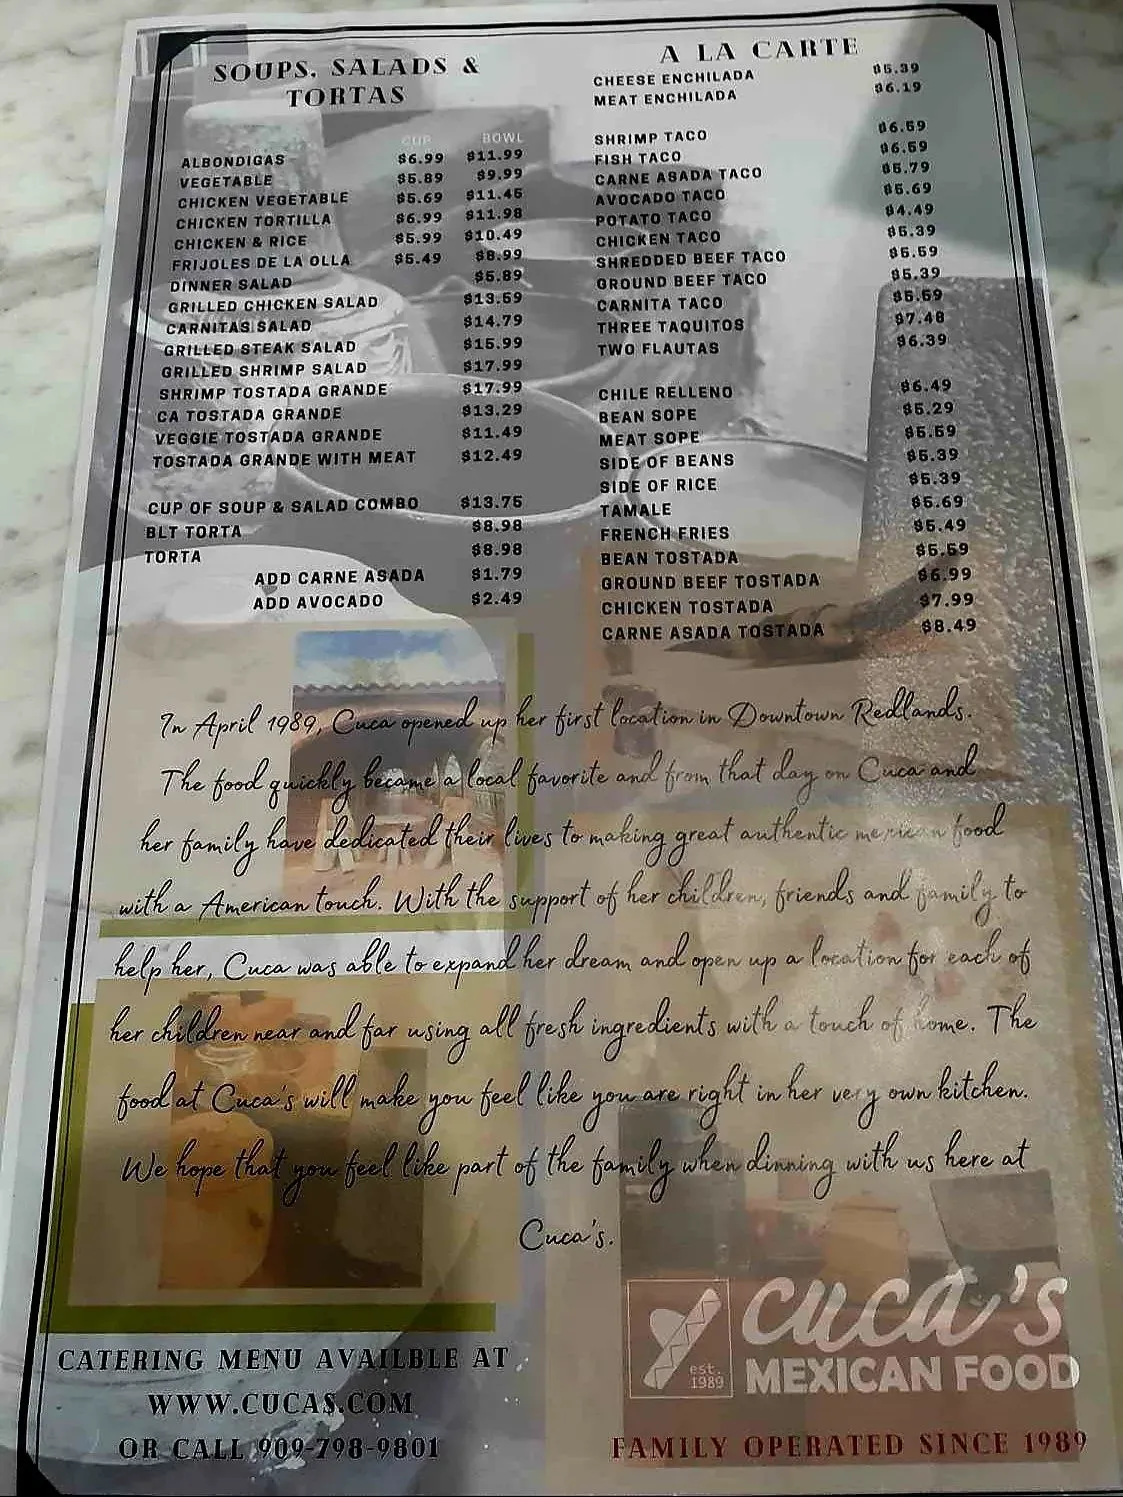 SOUPS, SALADS &
TORTAS
CUP BOWL
ALBONDIGAS $6.99 $11.99
VEGETABLE $5.89 $9.99
CHICKEN VEGETABLE $5.69 $11.45
CHICKEN TORTILLA $6.99 $11.98
CHICKEN & RICE $5.99 $10.49
FRIJOLES DE LA OLLA $5.49 $8.99
DINNER SALAD $5.89
GRILLED CHICKEN SALAD $13.59
CARNITAS SALAD $14.79
GRILLED STEAK SALAD $15.99
GRILLED SHRIMP SALAD $17.99
SHRIMP TOSTADA GRANDE $17.99
CA TOSTADA GRANDE $13.29
VEGGIE TOSTADA GRANDE $11.49
TOSTADA GRANDE WITH MEAT $12.49
CUP OF SOUP & SALAD COMBO $13.75
BLT TORTA $8.98
TORTA $8.98
ADD CARNE ASADA $1.79
ADD AVOCADO $2.49
A LA CARTE
CHEESE ENCHILADA $5.39
MEAT ENCHILADA $6.19
SHRIMP TACO $6.59
FISH TACO $6.59
CARNE ASADA TACO $5.79
AVOCADO TACO $5.69
POTATO TACO $4.49
CHICKEN TACO $5.39
SHREDDED BEEF TACO $5.59
GROUND BEEF TACO $5.39
CARNITA TACO $5.59
THREE TAQUITOS $7.48
TWO FLAUTAS $6.39
CHILE RELLENO $6.49
BEAN SOPE $5.29
MEAT SOPE $5.59
SIDE OF BEANS $5.39
SIDE OF RICE $5.39
TAMALE $5.69
FRENCH FRIES $5.49
BEAN TOSTADA $5.59
GROUND BEEF TOSTADA $6.99
CHICKEN TOSTADA $7.99
CARNE ASADA TOSTADA $8.49
In April 1989, Cuca opened up her first location in Downtown Redlands.
The food quickly became a local favorite and from that day on Cuca and
her family have dedicated their lives to making great authentic mexican food
with a American touch. With the support of her children, friends and family to
help her, Cuca was able to expand her dream and open up a location for each of
her children near and far using all fresh ingredients with a touch of home. The
food at Cuca's will make you feel like you are right in her very own kitchen.
We hope that you feel like part of the family when dinning with us here at
Cuca's.
CATERING MENU AVAILBLE AT
WWW.CUCAS.COM
OR CALL 909-798-9801
est.
1989
cuca's
MEXICAN FOOD
FAMILY OPERATED SINCE 1989